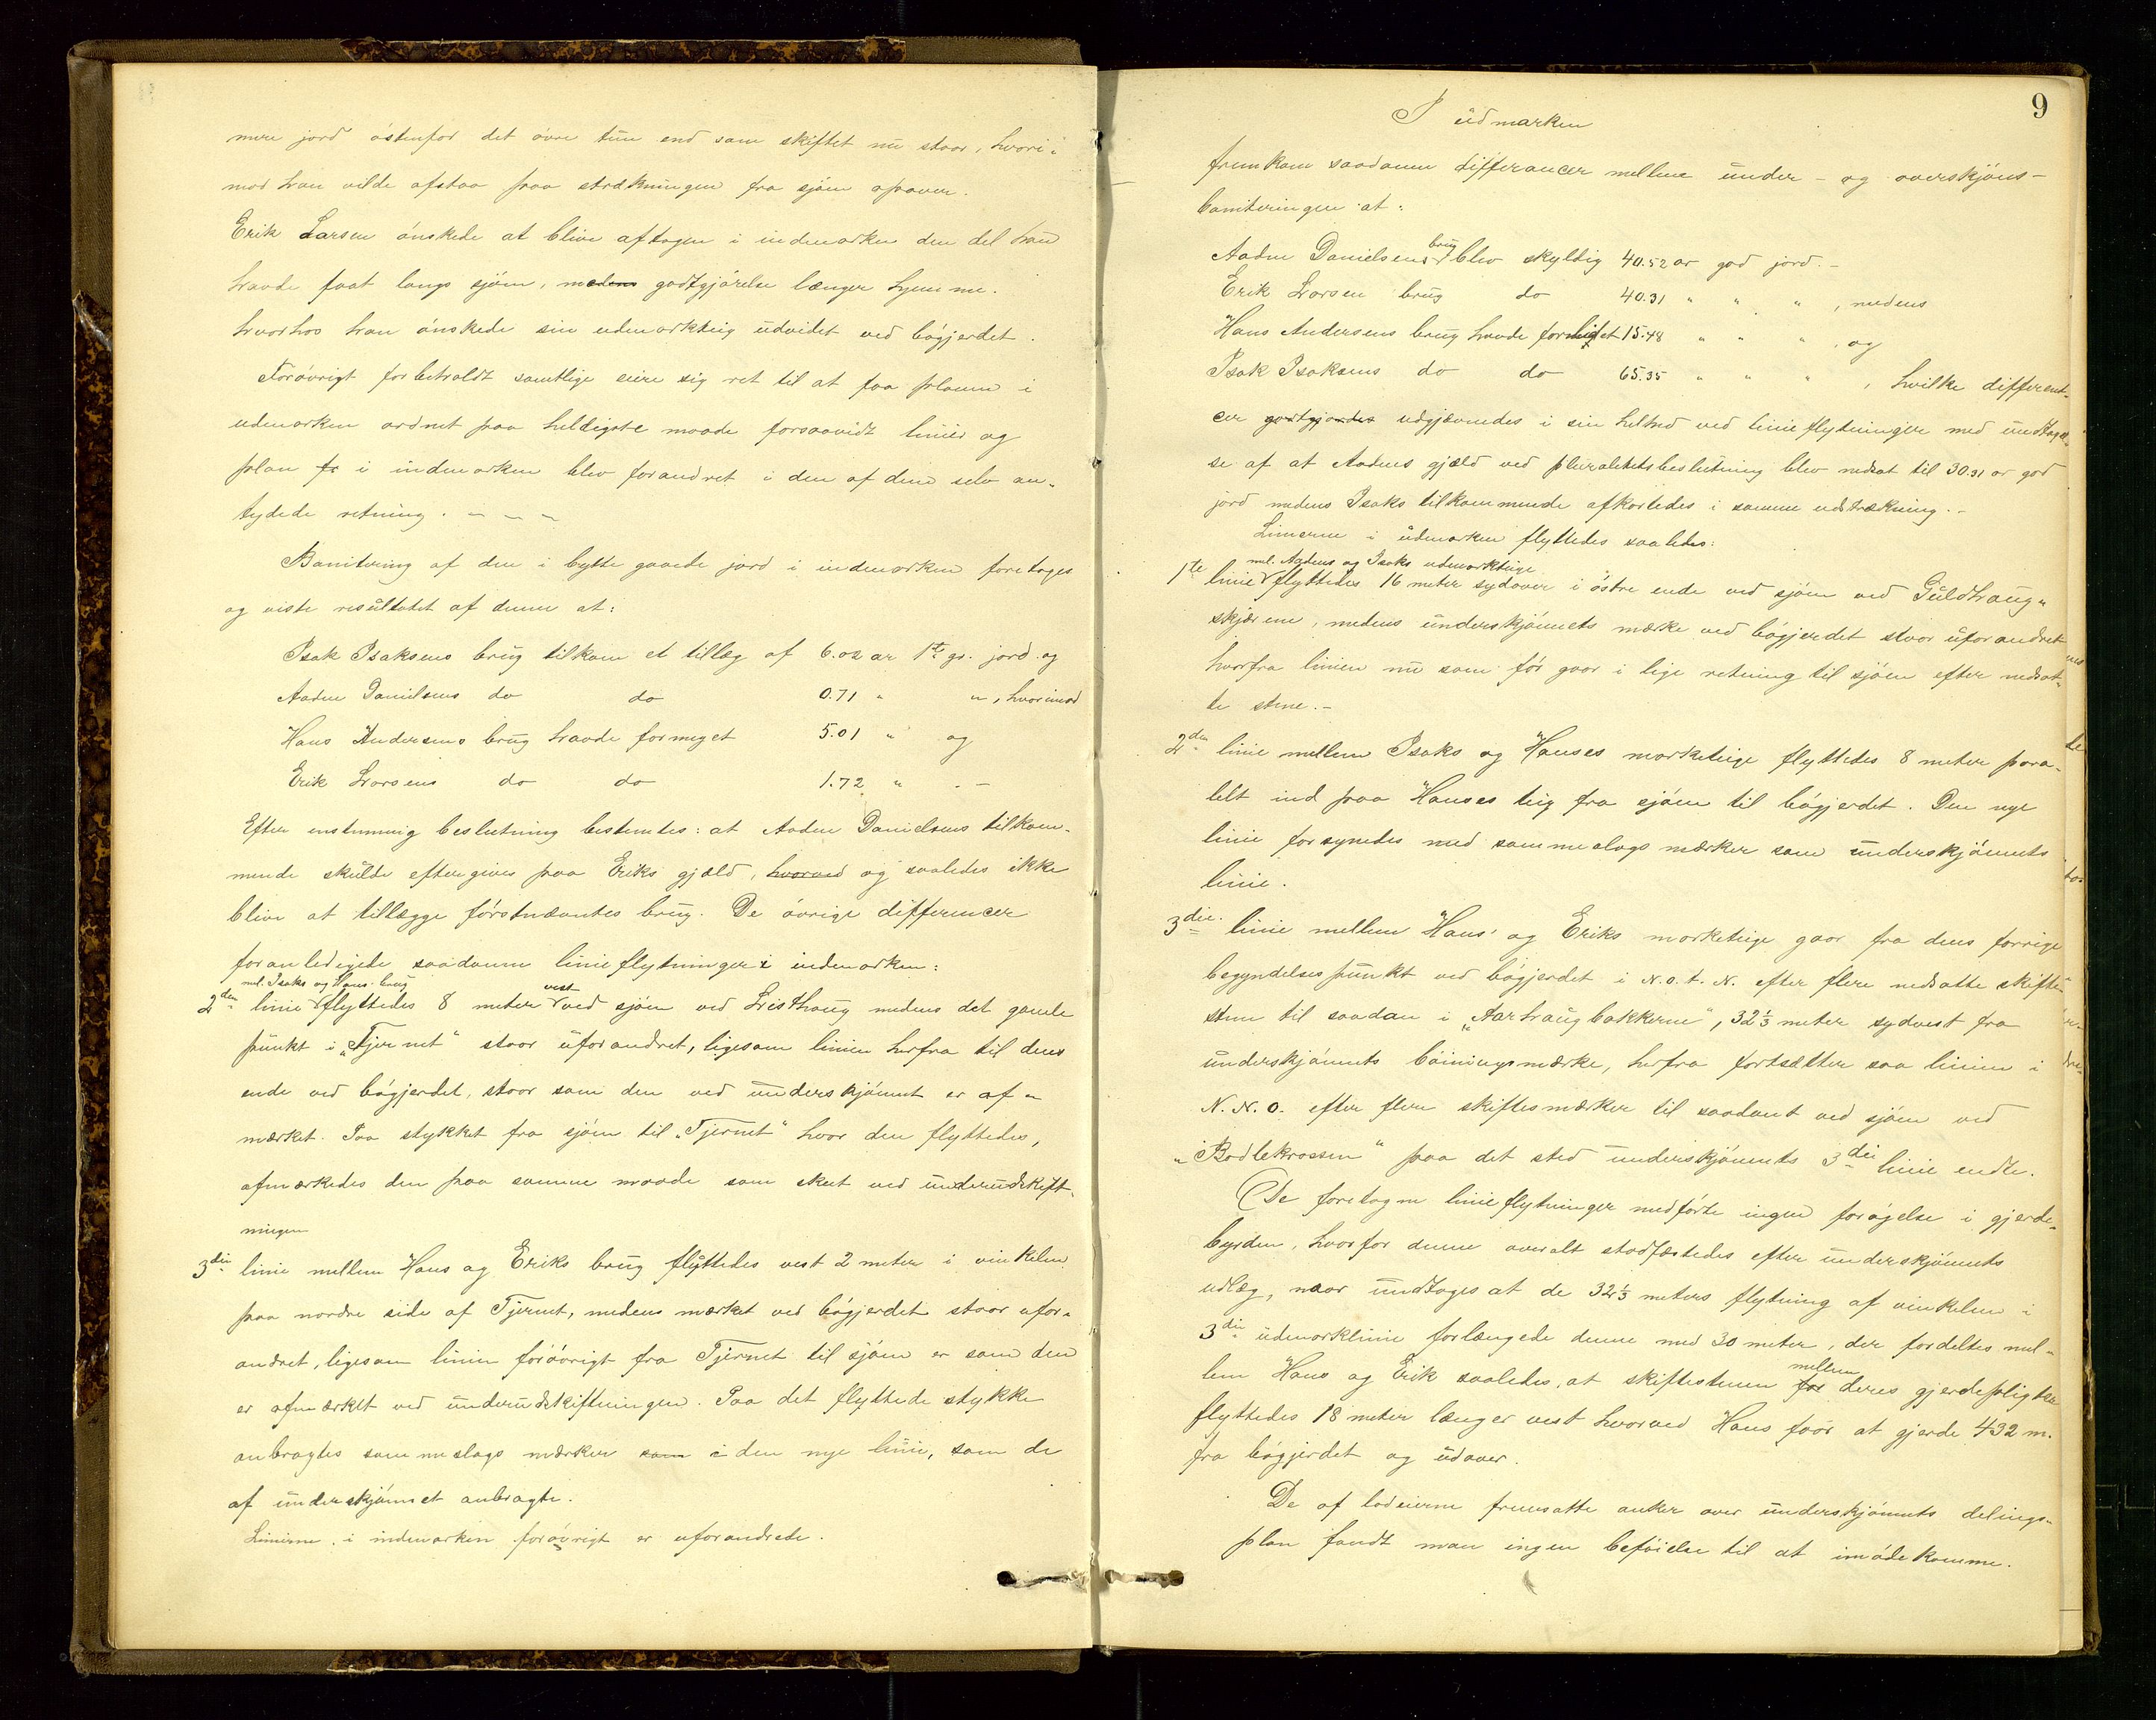 mere jord östenfor det övre tun end som skiftet nu staar, hvori-
mod han vilde afstaa paa strækningen fra sjöen opover.
Erik Larsen önskede at blive aftagen i indmarken den del han
havde faat langs sjöen, medens godtgjörelse længer hjemme.
hvorhos han önskede sin udmarkteig udvidet ved bögjerdet.
Forövrigt forbeholdt samtlige eiere sig ret til at faa planen i
udmarken ordnet paa heldigste maade forsaavidt linier og
plan fo i indmarken blev forandret i den af dem selv an-
tydede retning. — — —
Bonitering af den i bytte gaaede jord i indmarken foretoges
og viste resultatet af denne at:
Isak Isaksens brug tilkom et tillæg af 6.02 ar 1ste gr. jord og
Aadne Danielsens do do 0.71 " ", hvorimod
Hans Andersens brug havde formeget 5.01 " og
Erik Larsens do do 1.72 " . —
Efter enstemmig beslutning bestemtes: at Aadne Danielsens tilkom-
mende skulde eftergives paa Eriks gjæld, hvorved og saaledes ikke
blive at tillægge förstnævntes brug. De övrige differencer
foranledigede saadanne linieflytninger i indmarken:
ml. Isaks og Hans brug
vest
2den linie flyttedes 8 meter ved sjöen ved Listhaug medens det gamle
punkt i "Tjernet" staar uforandret, ligesom linien herfra til dens
ende ved bögjerdet, staar som den ved underskjönnet er af-
mærket. Paa stykket fra sjöen til "Tjernet" hvor den flyttedes,
afmærkedes den paa samme maade som skeet ved underudskift-
ningen
3die linie mellem Hans og Eriks brug flyttedes vest 2 meter i vinkelen
paa nordre side af Tjernet, medens mærket ved bögjerdet staar ufor-
andret, ligesom linien forövrigt fra Tjernet til sjöen er som den
er afmærket ved underudskiftningen. Paa det flyttede stykke
anbragtes sammeslags mærker som i den nye linie, som de
af underskjönnet anbragte.
Linierne i indmarken forövrigt er uforandrede.
9
I udmarken
fremkom saadanne differancer mellem under- og overskjöns-
boniteringen at:
brug
Aadne Danielsens blev skyldig 40.52 ar god jord. —
Erik Larsen brug do 40.31 " " ", medens
Hans Andersens brug havde formeget 15.48 " " ", og
Isak Isaksens do do 65.35 " " ", hvilke different-
cer godtgjordes udgjævnedes i sin helhed ved linieflytninger med undtagel-
se af at Aadnes gjæld ved pluralitetsbeslutning blev nedsat til 30.31 ar god
jord medens Isaks tilkommende afkortedes i samme udstrækning. —
Linierne i udmarken flyttedes saaledes:
ml. Aadnes og Isaks udmarkteige
1ste linie flyttedes 16 meter sydover i östre ende ved sjöen ved Guldhaug-
skjærene, medens underskjönnets mærke ved bögjerdet staar uforandret
hvorfra linien nu som för gaar i lige retning til sjöen efter nedsat-
te stene. —
2den linie mellem Isaks og Hanses markteige flyttedes 8 meter para-
lelt ind paa Hanses teig fra sjöen til bögjerdet. Den nye
linie forsynedes med sammeslags mærker som underskjönnets
linie.
3die linie mellem Hans' og Eriks markteige gaar fra dens forrige
begyndelsespunkt ved bögjerdet i N.O.t.N. efter flere nedsatte skifte-
stene til saadan i "Aarhaugbakkerne", 32 1/3 meter sydvest fra
underskjönnets böiningsmærke, herfra fortsætter saa linien i
N.N.O. efter flere skiftesmærker til saadant ved sjöen ved
"Badlekrossen" paa det sted underskjönnets 3die linie endte.
De foretagne linieflytninger medförte ingen forögelse i gjerde-
byrden, hvorfor denne overalt stadfæstedes efter underskjönnets
udlæg, naar undtages at de 32 1/3 meters flytning af vinkelen i
3die udmarklinie forlængede denne med 30 meter, der fordeltes mel-
mellem
lem Hans og Erik saaledes, at skiftestenen for deres gjerdepligter
flyttedes 18 meter længer vest hvorved Hans faar at gjerde 432 m.
fra bögjerdet og udover.
De af lodeierne fremsatte anker over underskjönnets delings-
plan fandt man ingen beföielse til at imödekomme.